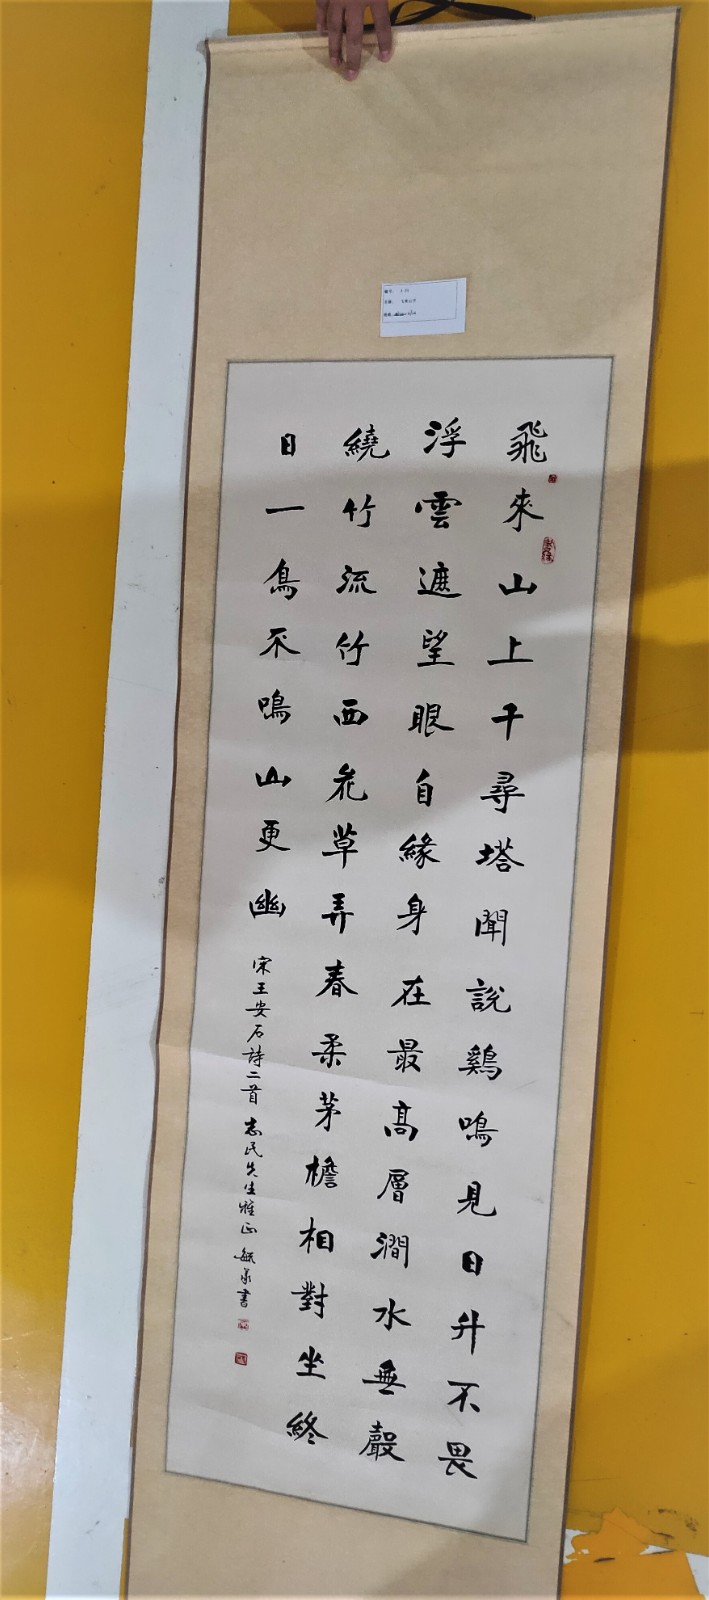 飛來山上千尋塔聞說鷄鳴見日升不畏
浮雲遮望眼自緣身在最高層澗水無聲
繞竹流竹西花草弄春柔茅檐相對坐終
日一鳥不鳴山更幽
宋王安石詩二首 志民先生雅正 書